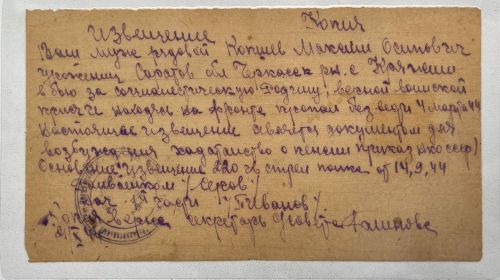 Извещение Копия
Ваш муж рядовой Кокшев Максим Осипович
уроженец Саратов обл Черкасск рн. с
в бою за социалистическую Родину, верной воинской
присяге находясь на фронте пропал без вести 4 марта 44
Настоящее извещение является документом для
возбуждения ходатайство о пенсии приказ нко ссср
Основание: извещение 220 гв стрел полка от 14,9,44
/Серов/
/Иванов/
Копия верна секретарь с/совета